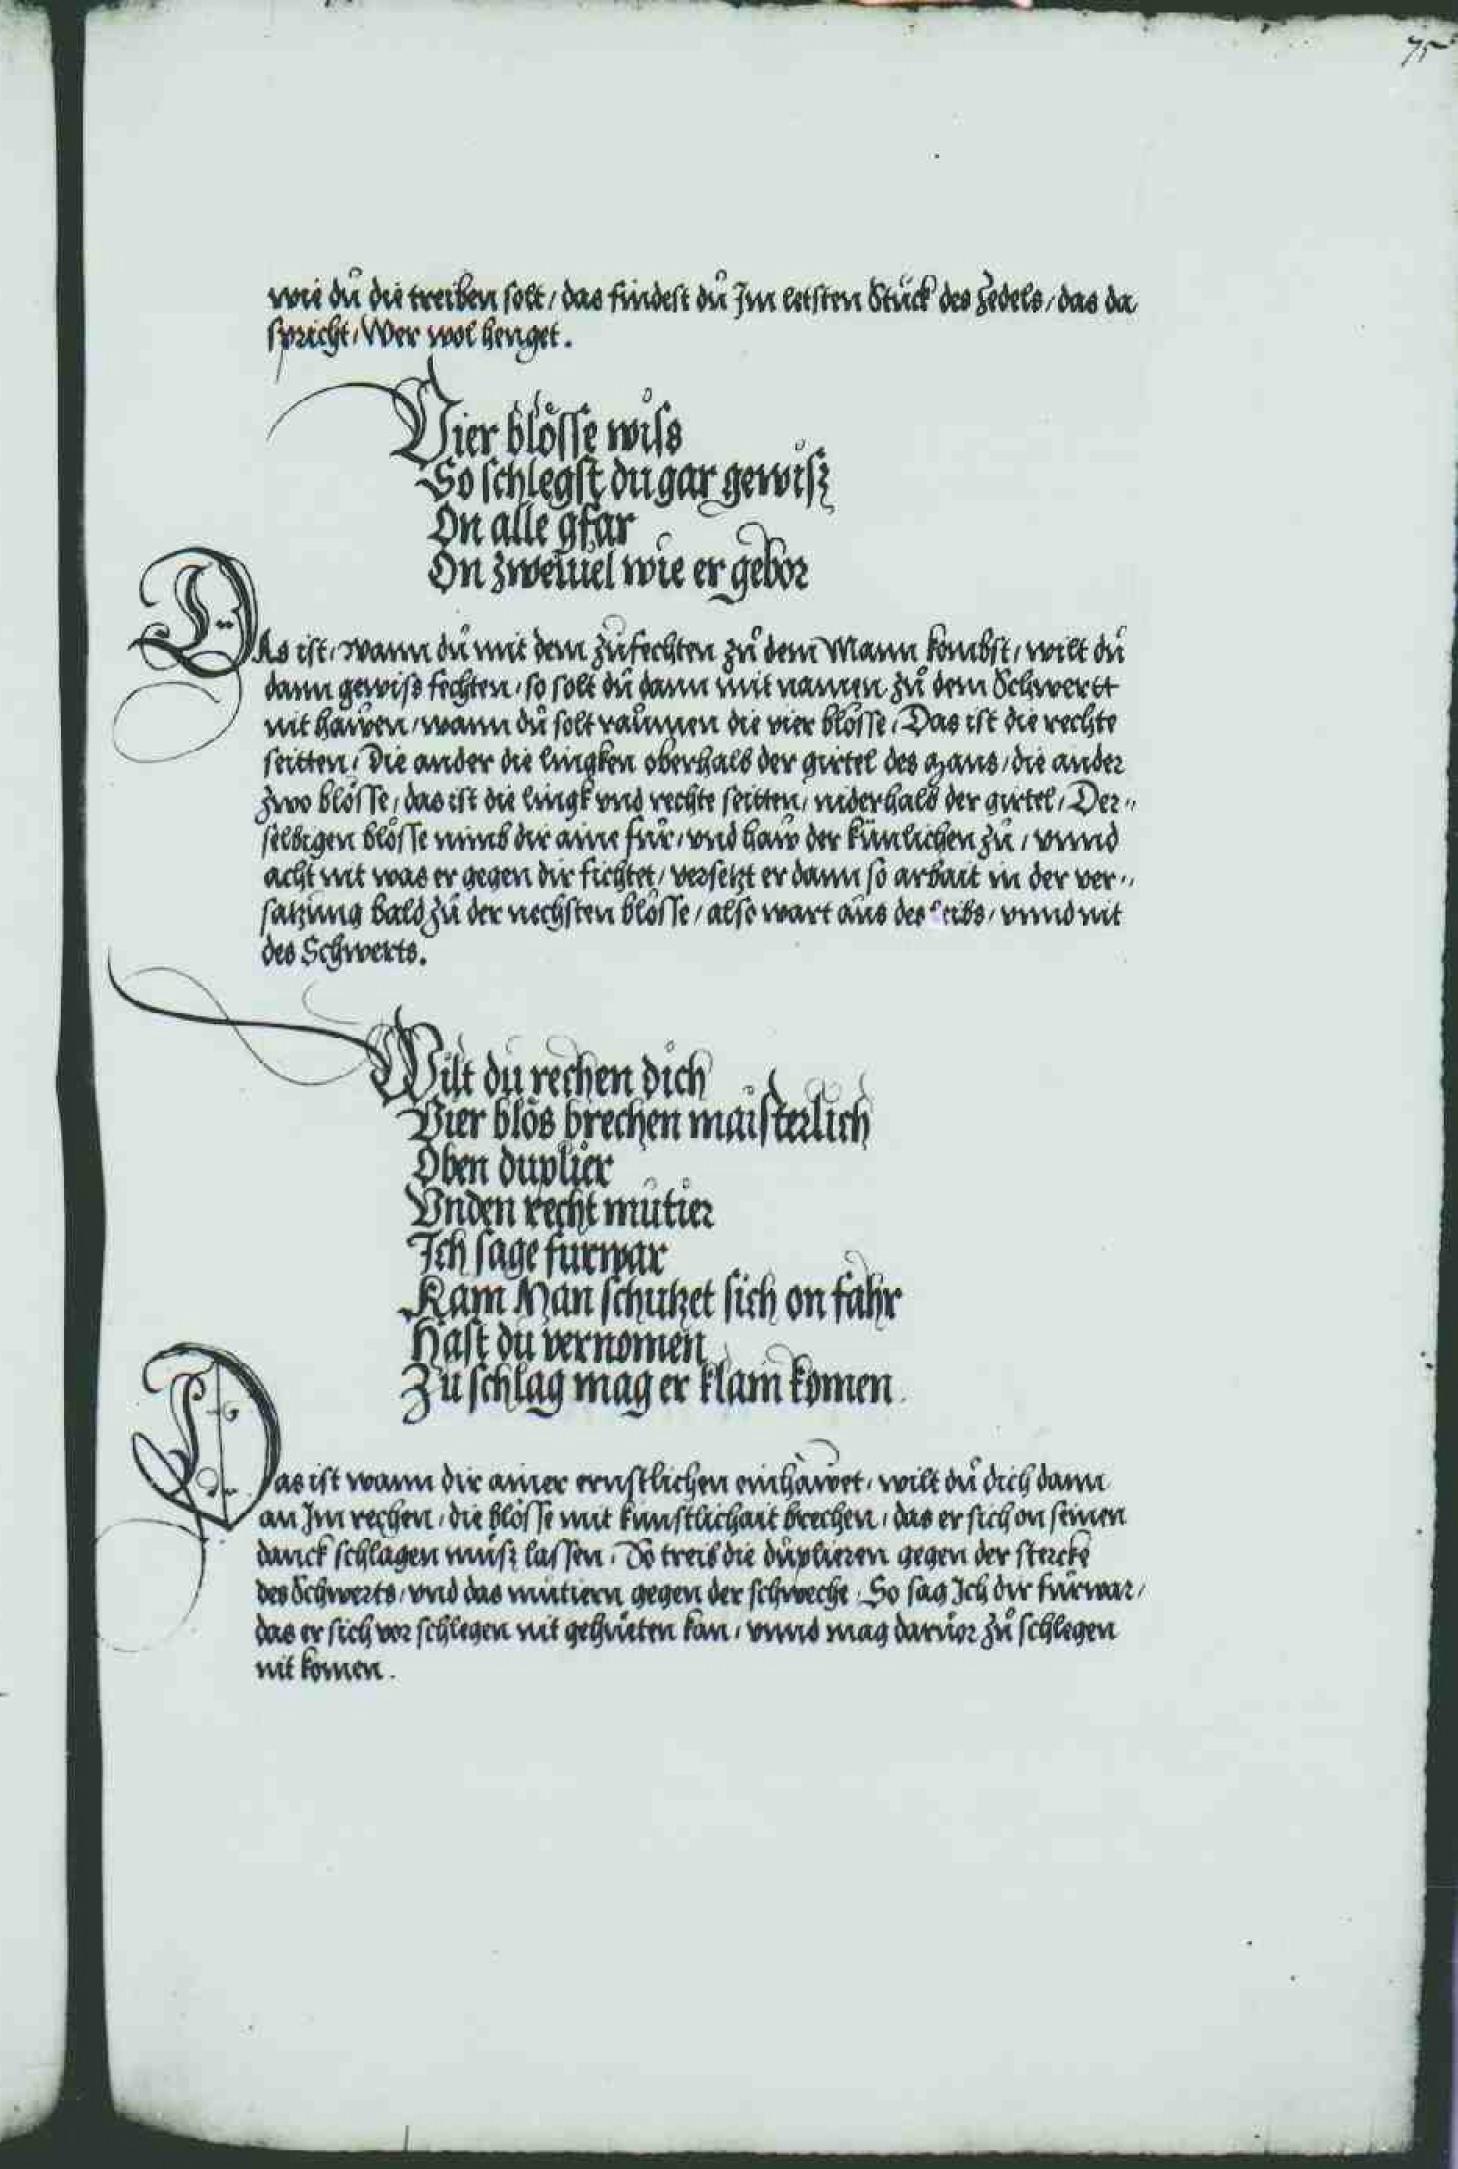 75
wie dů die treiben solt / das findest dů Im letsten Stuck des Zedels / das da
spricht / Wer wol henget.
Vier blösse wiss
So schlegst du gar gewisz
On alle gfar
On zweiuel wie er gebor
DAs ist / wann dů mit dem zůfechten zů dem Mann kombst / wilt dů
dann gewiss fechten / so solt dů dann mit namen zů dem Schwertt
nit hawen / wann dů solt raůmen die vier blösse / Das ist die rechte
seitten / Die ander die lingken oberhalb der girtel des Mans / die ander
zwo blösse / das ist die lingk vnd rechte seitten / niderhalb der girtel / Der"
selbigen blösse nimb dir aine für / vnd haw der künlichen zů / vnnd
acht nit was er gegen dir fichtet / versetzt er dann so arbait in der ver"
satzung bald zů der nechsten blösse / also wart aus des leibs / vnnd nit
des Schwerts.
Wilt du rechen dich
Vier blös brechen maisterlich
Oben duplier
Vnden recht mutier
Ich sage furwar
Kam Man schutzet sich on fahr
Hast du vernomen
Zu schlag mag er klain komen.
Das ist wann dir ainer ernstlichen einhawet / wilt dů dich dann
an Im rechen / die blösse mit kunstlichait brechen / das er sich on seinen
danck schlagen můsz lassen / So treib die duplieren gegen der stercke
des Schwerts / vnd das mutiern gegen der schweche / So sag Ich dir fůrwar /
das er sich vor schlegen nit gehüeten kan / vnnd mag daruor zů schlegen
nit komen.